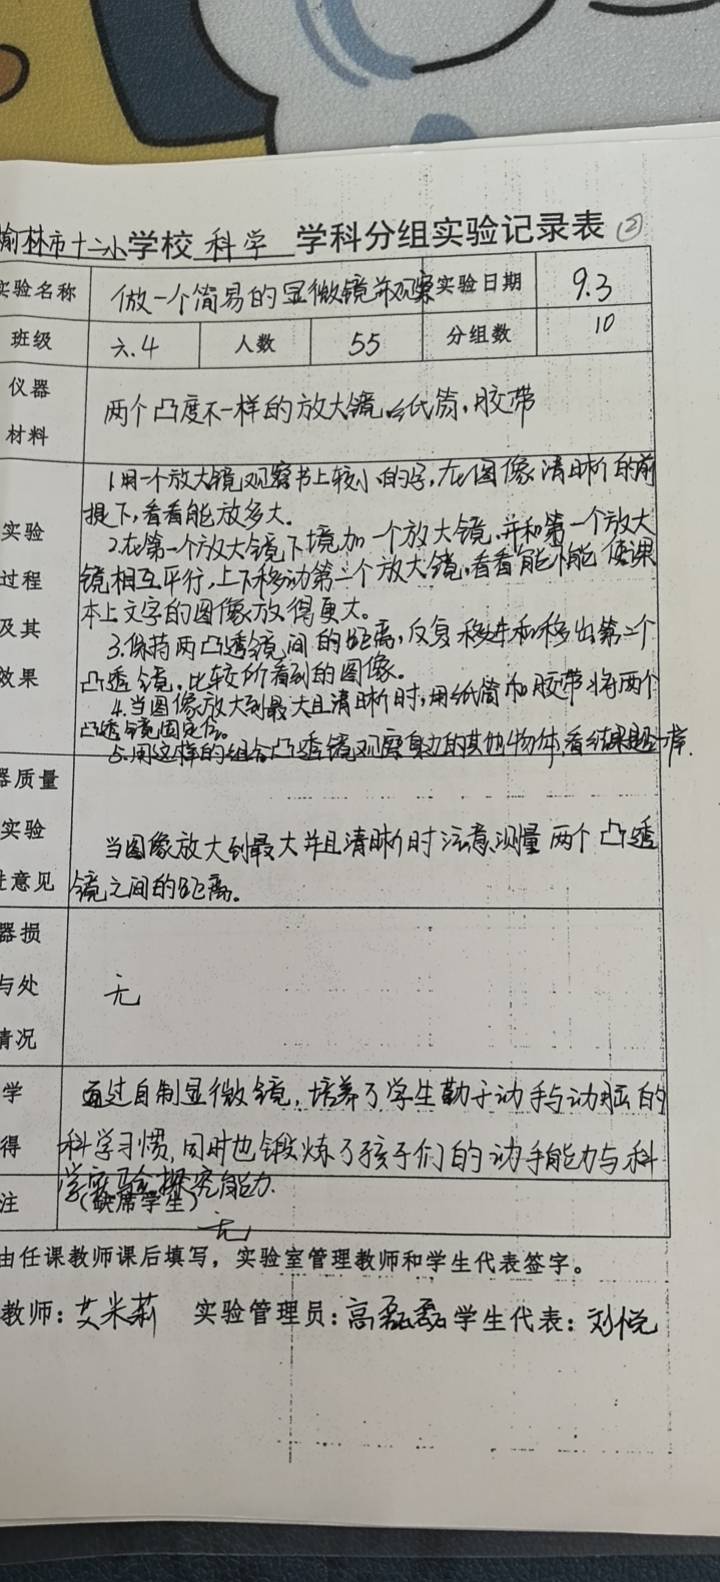 榆林市十二小学校 科学 学科分组实验记录表 ②
实验名称 做一个简易的显微镜并观察 实验日期 9.3
班级 六.4 人数 55 分组数 10
仪器
材料
两个凸度不一样的放大镜、纸筒、胶带
实验
过程
及其
效果
1.用一个放大镜观察书上较小的字,在图像清晰的前
提下,看看能放多大。
2.在第一个放大镜下增加一个放大镜,并和第一个放大
镜相互平行,上下移动第二个放大镜,看看能不能使课
本上文字的图像放得更大。
3.保持两凸透镜间的距离,反复移进和移出第二个
凸透镜,比较所看到的图像。
4.当图像放大到最大且清晰时,用纸筒和胶带将两个
凸透镜固定住。
5.用这样的组合凸透镜观察身边的其他物体,看结果
器质量
实验
意见
当图像放大到最大并且清晰时注意测量两个凸透
镜之间的距离。
器损
与处
情况
无
学
得
通过自制显微镜,培养了学生勤于动手与动脑的
科学习惯,同时也锻炼了孩子们的动手能力与科
学实验探究能力.
注 (缺席学生)
无
由任课教师课后填写，实验室管理教师和学生代表签字。
教师：艾米莉 实验管理员：高磊磊 学生代表：刘悦